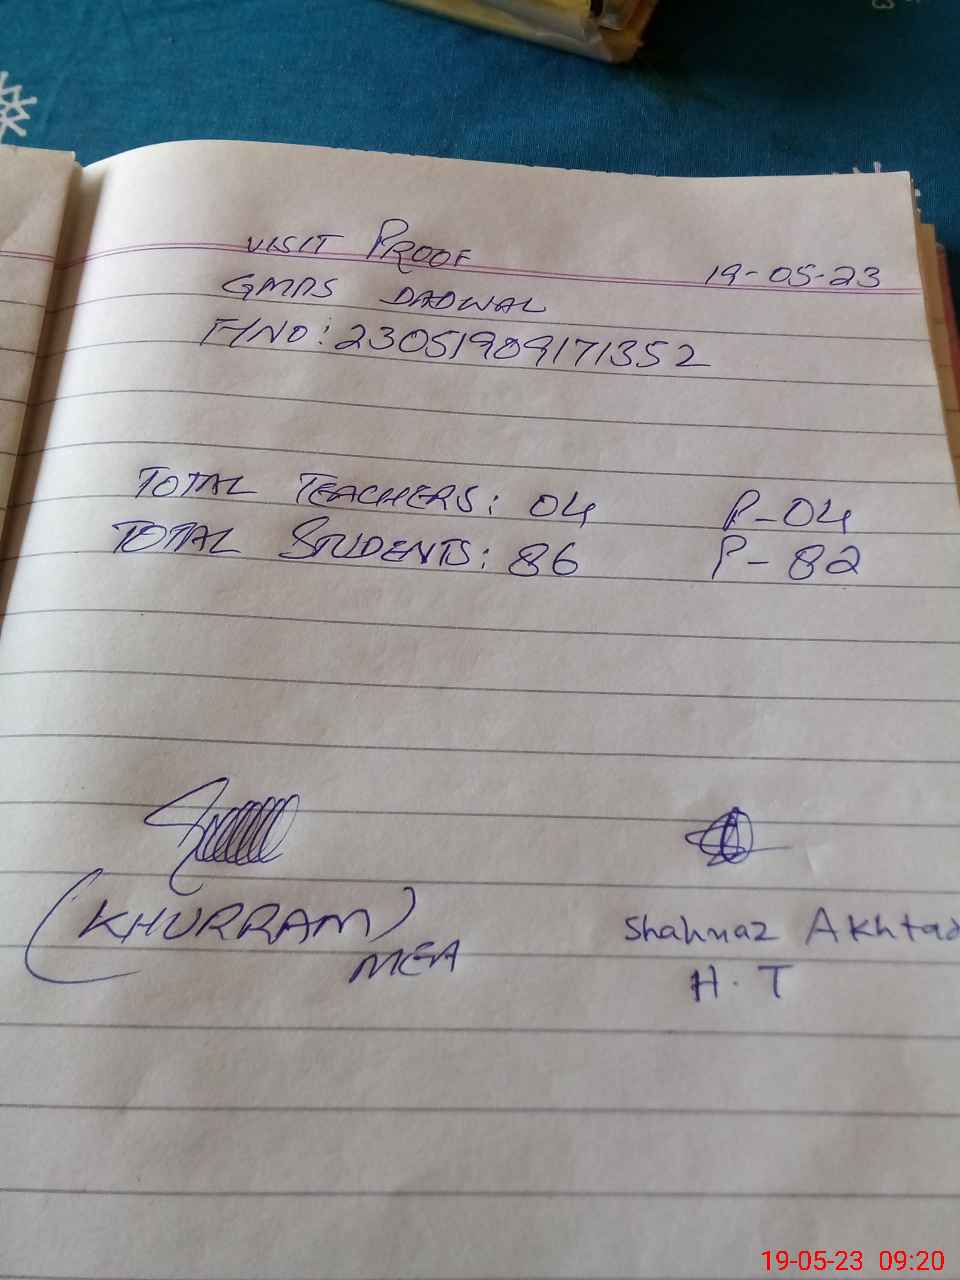 VISIT PROOF 19-05-23
GMPS DADWAL
F/NO: 23051909171352
TOTAL TEACHERS: 04 P-04
TOTAL STUDENTS: 86 P-82
(KHURRAM) Shahnaz Akhtar
MEA H.T
19-05-23 09:20